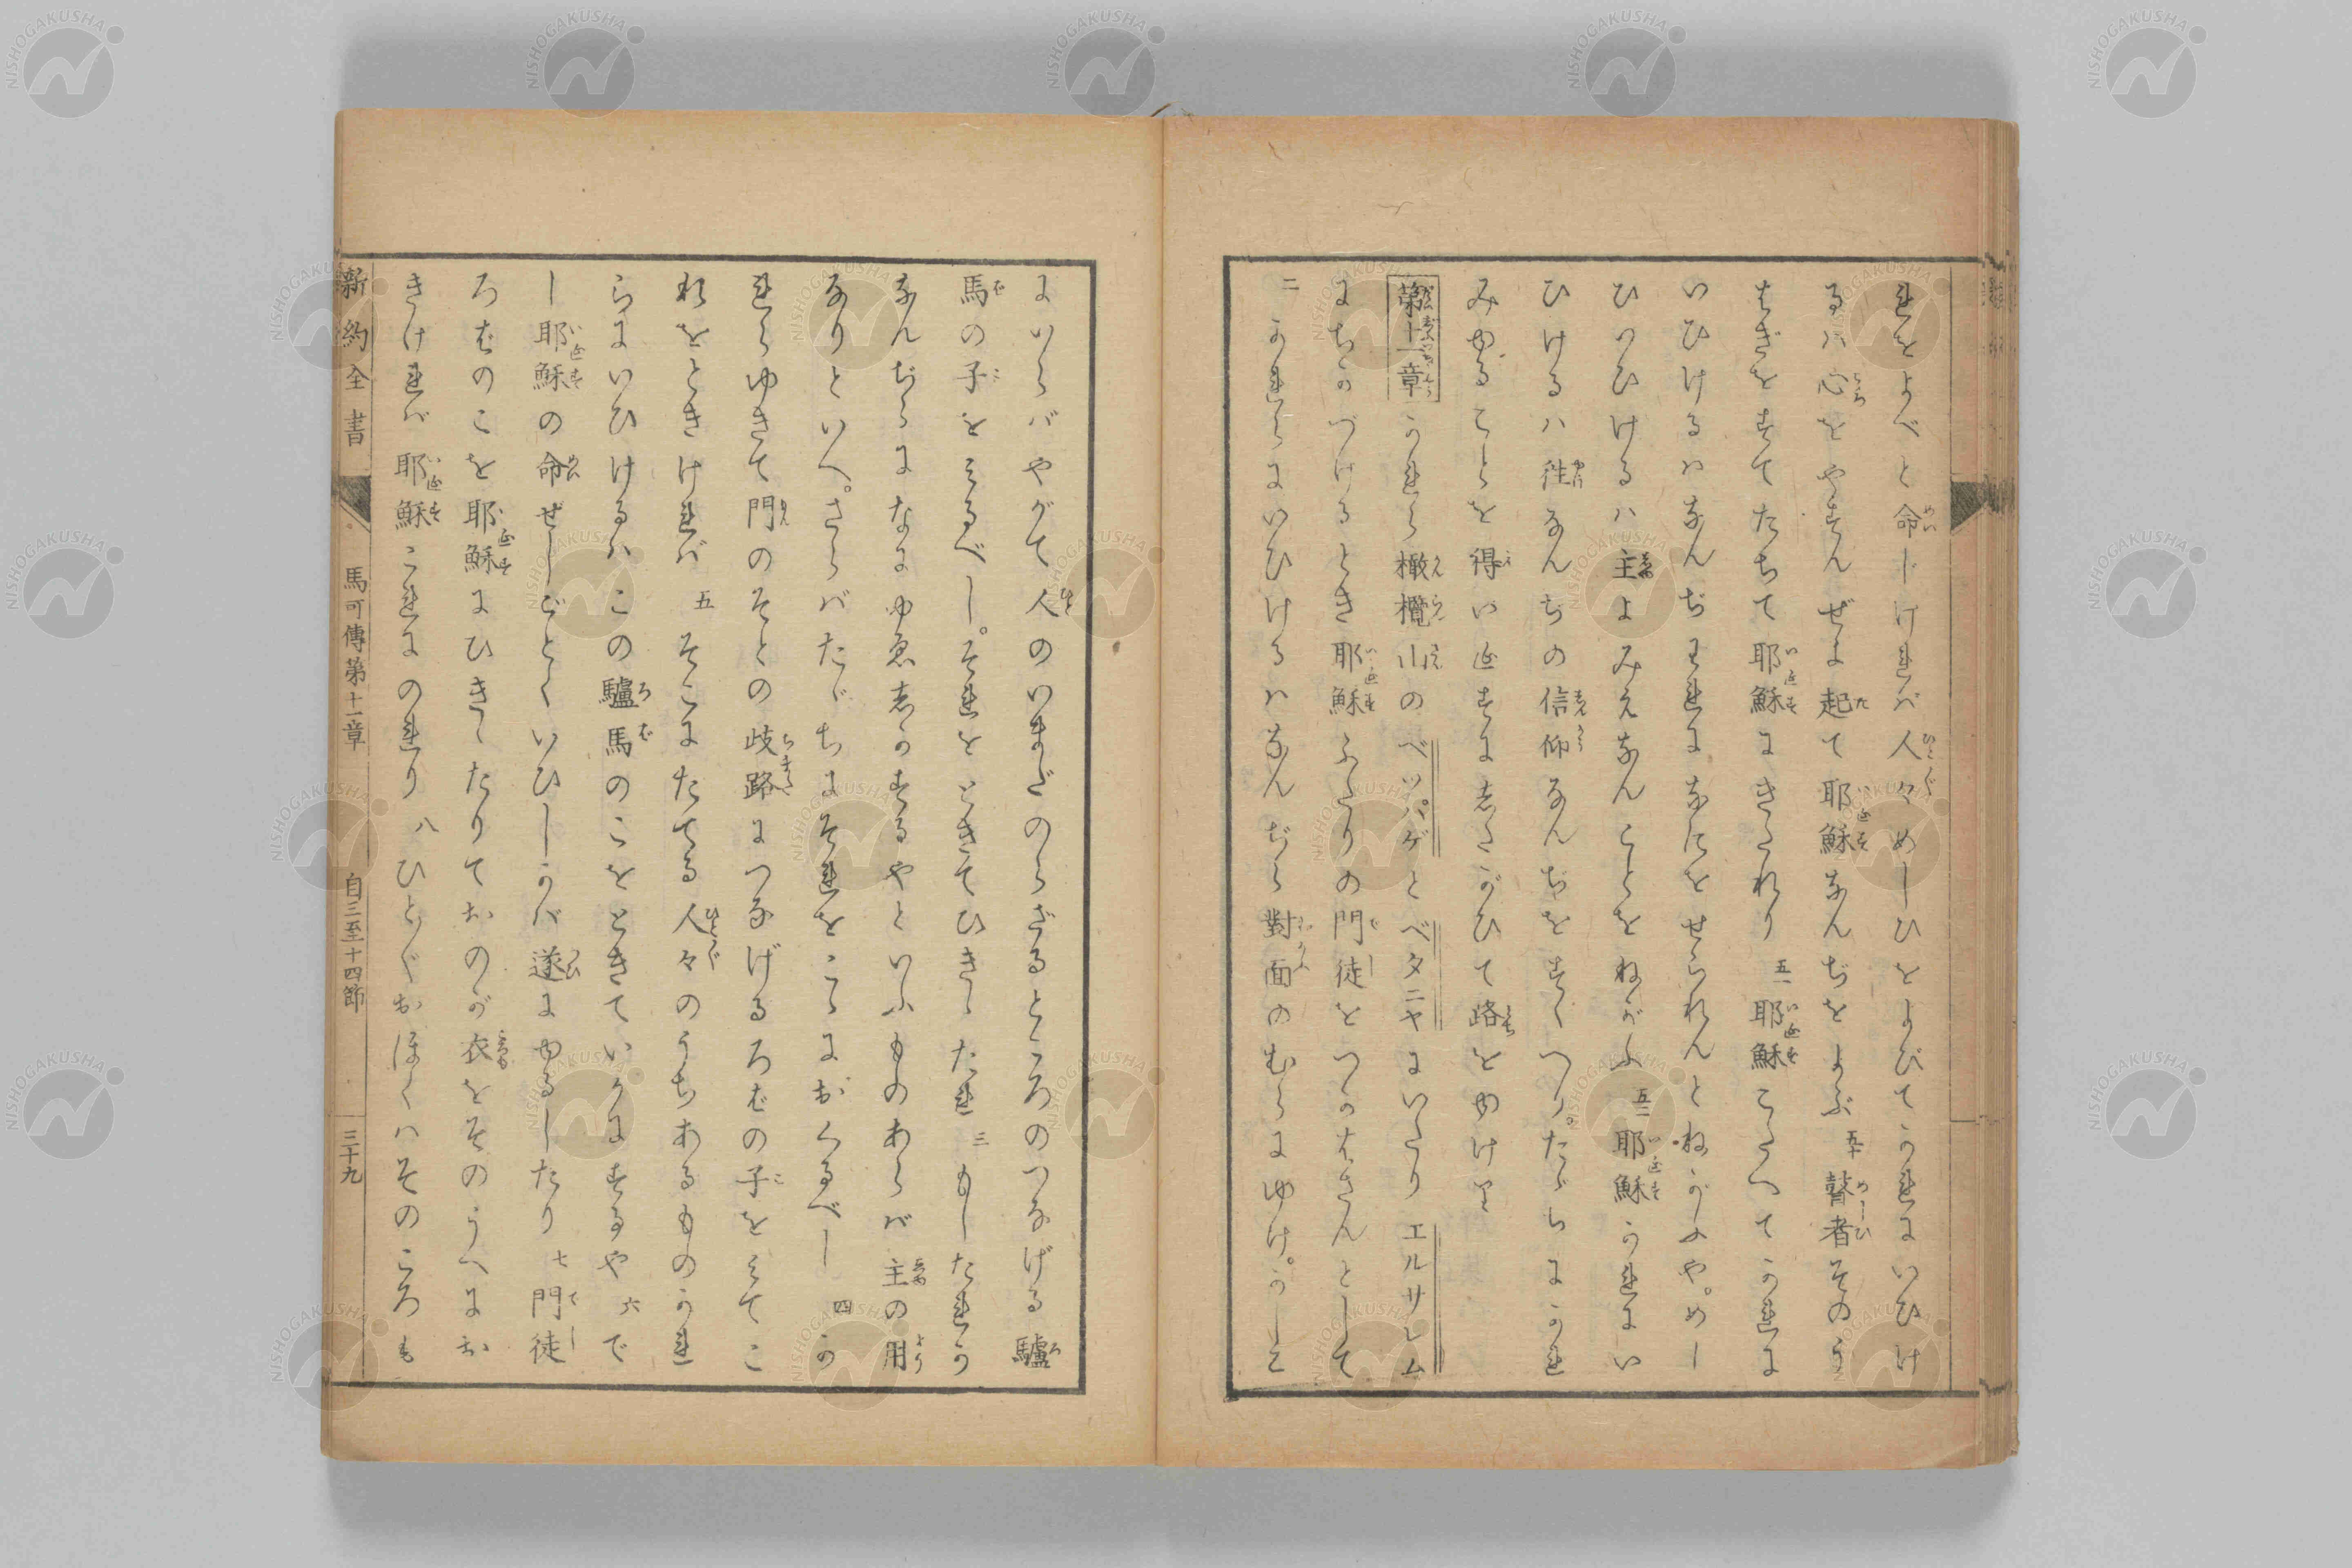 れをよべと命じけれバ人々めしひをよびてかれにいひけ
るハ心をやすんぜよ起て耶穌なんぢをよぶ 五十 瞽者そのう
はぎをすてたちて耶穌にきたれり 五一 耶穌こたへてかれに
いひけるハなんぢわれになにをせられんとねがふや。めし
ひいひけるハ主よみえなんことをねがふ 五二 耶穌かれにい
ひけるハ往なんぢの信仰なんぢをすくへり。たゞちにかれ
みゆることを得いゑすにしたがひて路をゆけり
第十一章 かれら橄欖山のベツパゲとベタニヤにいたりエルサレム
にちかづけるとき耶穌ふたりの門徒をつかはさんとして
二 かれらにいひけるハなんぢら對面のむらにゆけ。かしこ
にいらバやがて人のいまだのらざるところのつなげる驢
馬の子をみるべし。それをときてひききたれ 三 もしたれか
なんぢらになにゆゑしかするやといふものあらバ主の用
なりといへ。さらバたゞちにそれをこゝにおくるべし 四 か
れらゆきて門のそとの歧路につなげるろばの子をみてこ
れをときけれバ 五 そこにたてる人々のうちあるものかれ
らにいひけるハこの驢馬のこをときていかにするや 六 で
し耶穌の命ぜしごとくいひしかバ遂にゆるしたり 七 門徒
ろばのこを耶穌にひききたりておのが衣をそのうへにお
きけれバ耶穌これにのれり 八 ひとびとおほくハそのころも
新約全書 馬可傳第十一章 自三至十四節 三十九
NISHOGAKUSHA